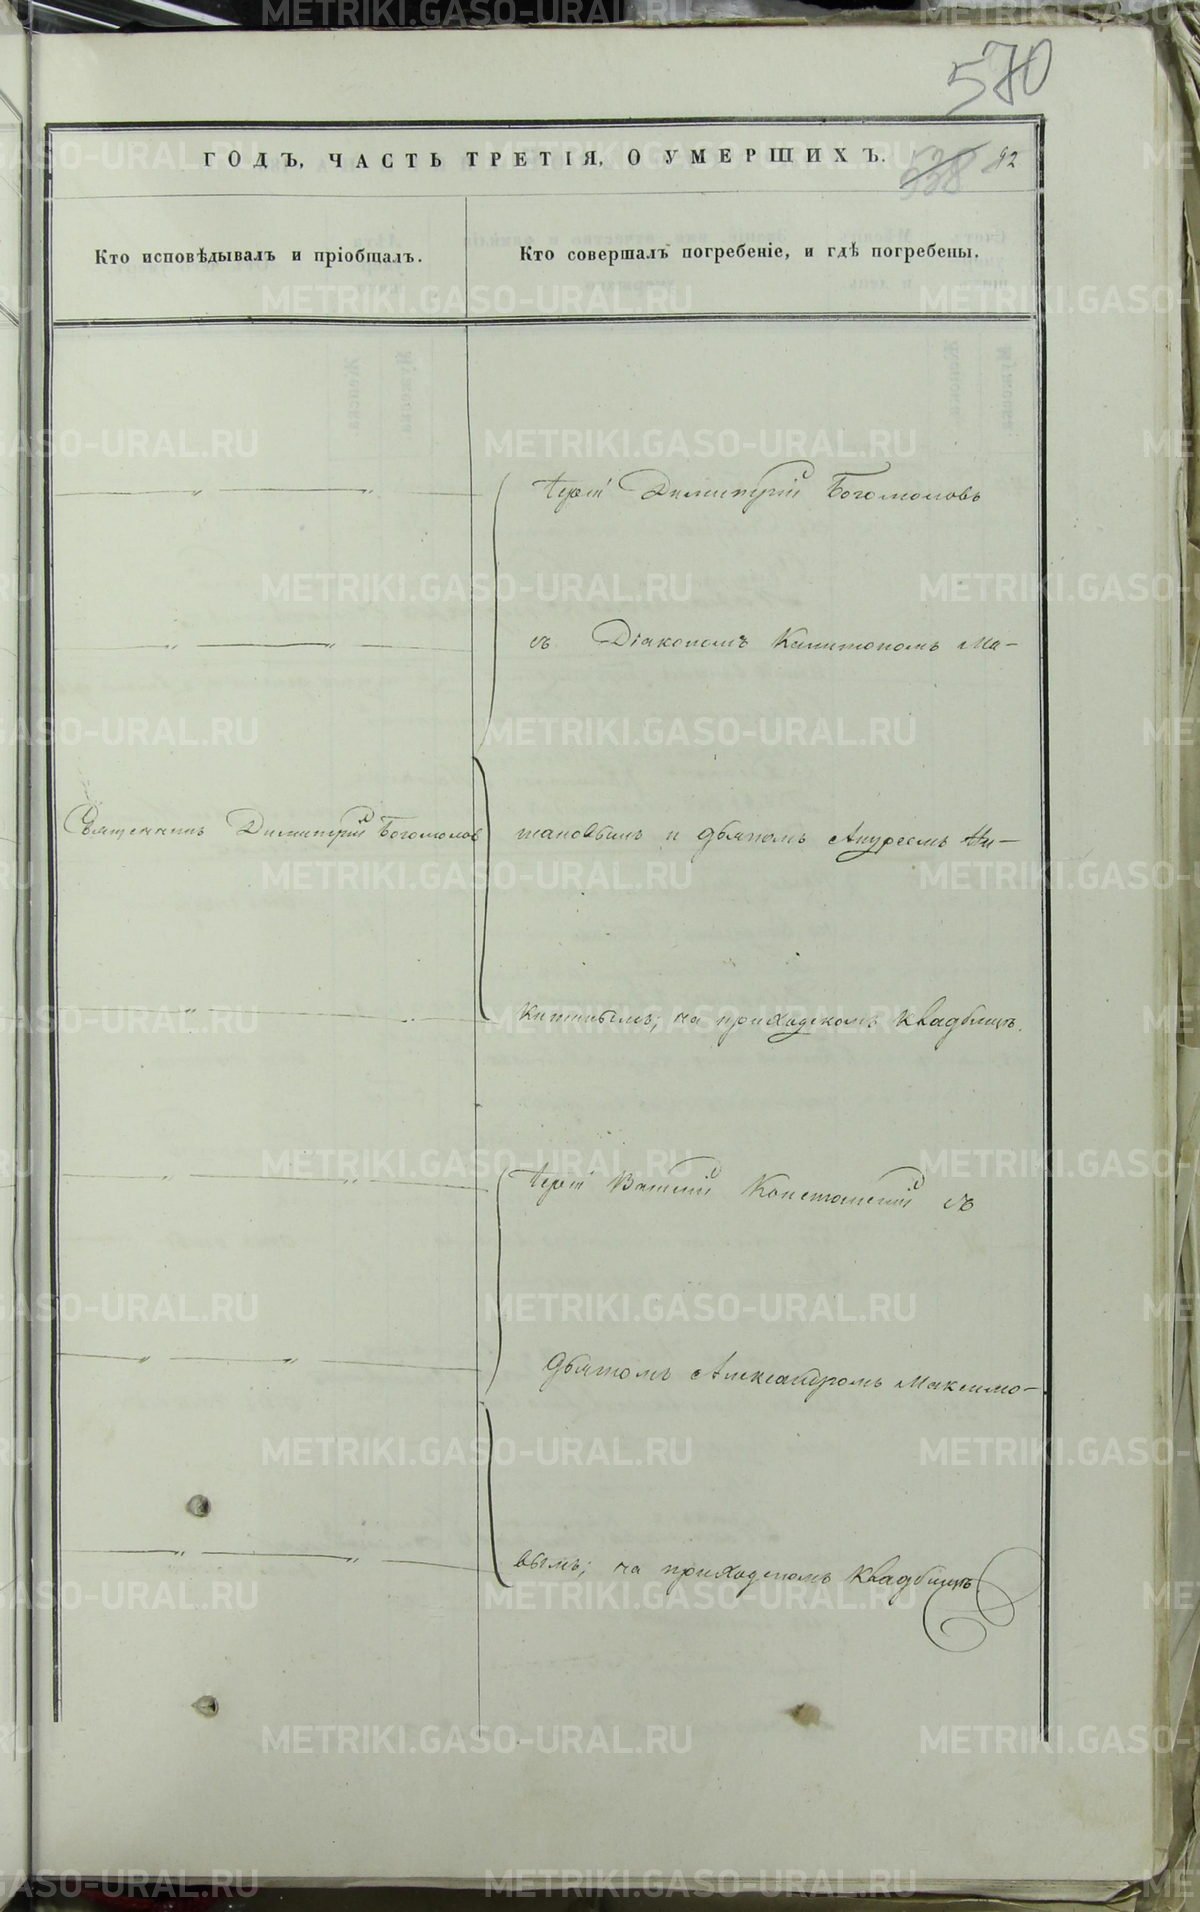 570
ГОДЪ, ЧАСТЬ ТРЕТІЯ, О УМЕРШИХЪ.
538 82
Кто исповѣдывалъ и пріобщалъ.
Кто совершалъ погребеніе, и гдѣ погребены.
Іерей Димитрій Богомоловъ
съ Діакономъ Капитономъ Ма-
Священникъ Димитрій Богомолов
мановымъ и дьячкомъ Андреемъ Ни-
китинымъ; на приходскомъ кладбищѣ.
Іерей Василій Констанскій съ
дьячкомъ Александромъ Максимо-
вымъ; на приходскомъ кладбищѣ
METRIKI.GASO-URAL.RU